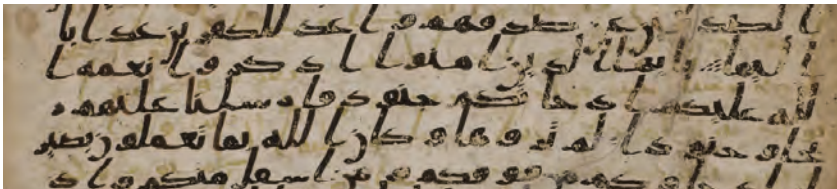 الصدقين عن صدقهم واعد للكفرين عذابا
اليما يايها الذين امنوا اذكروا نعمه ا
لله عليكم اذ جاتكم جنود فارسلنا عليهم ر
يحا وجنودا لم تروها وكان الله بما تعملون بصير
ا اذ جاوكم من فوقكم ومن اسفل منكم واذ